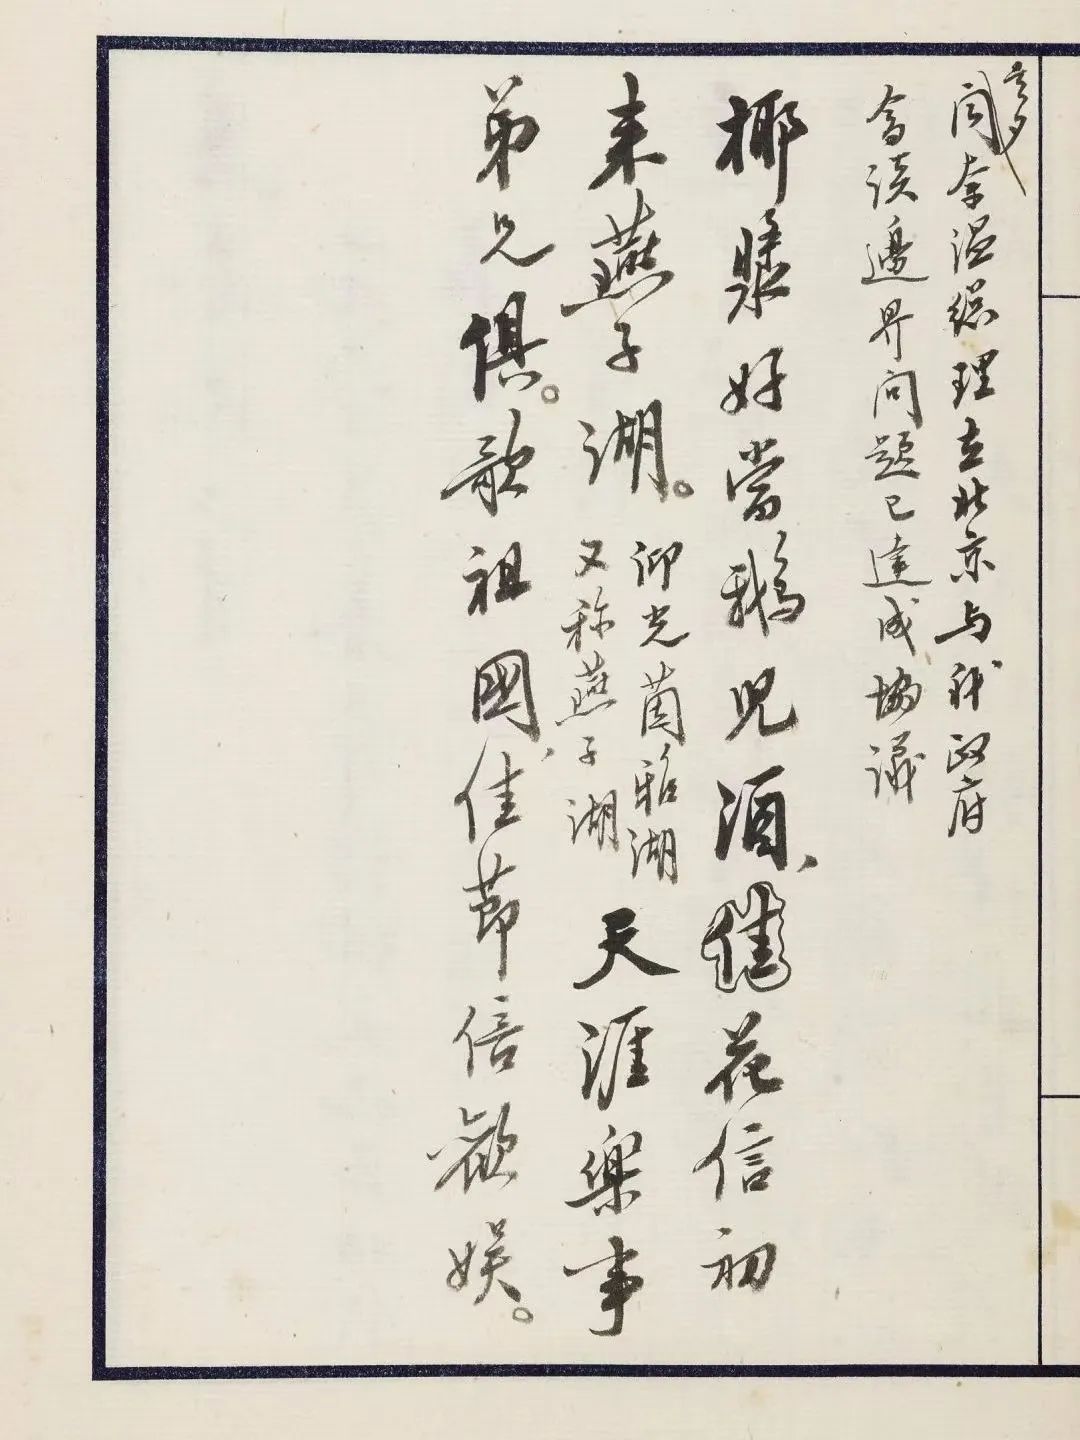 闻奈温總理在北京与我政府
會谈邊界问题已達成協議
椰漿好當鵝兒酒、催花信初
来燕子湖。仰光茵雅湖
又称燕子湖天涯樂事
弟兄俱。歌祖國、佳節倍歡娱。